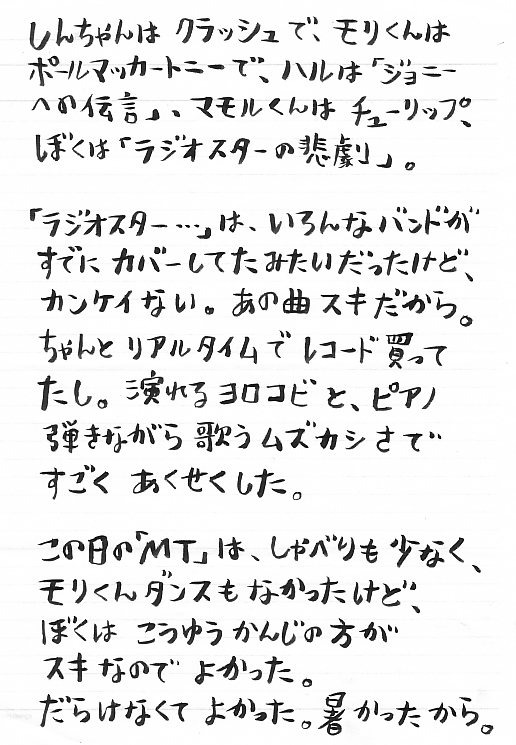 しんちゃんは クラッシュで、モリくんは
ポールマッカートニーで、ハルは「ジョニー
への伝言」、マモルくんは チューリップ、
ぼくは「ラジオスターの悲劇」。
「ラジオスター…」は、いろんなバンドが
すでに カバーしてたみたいだったけど、
カンケイない。あの曲 スキだから。
ちゃんと リアルタイムで レコード 買って
たし。演れる ヨロコビ と、ピアノ
弾きながら 歌う ムズカシさで
すごく あくせくした。
この日の「MT」は、しゃべりも 少なく、
モリくんダンスも なかったけど、
ぼくは こうゆう かんじの方が
スキなので よかった。
だらけなくて よかった。暑かったから。